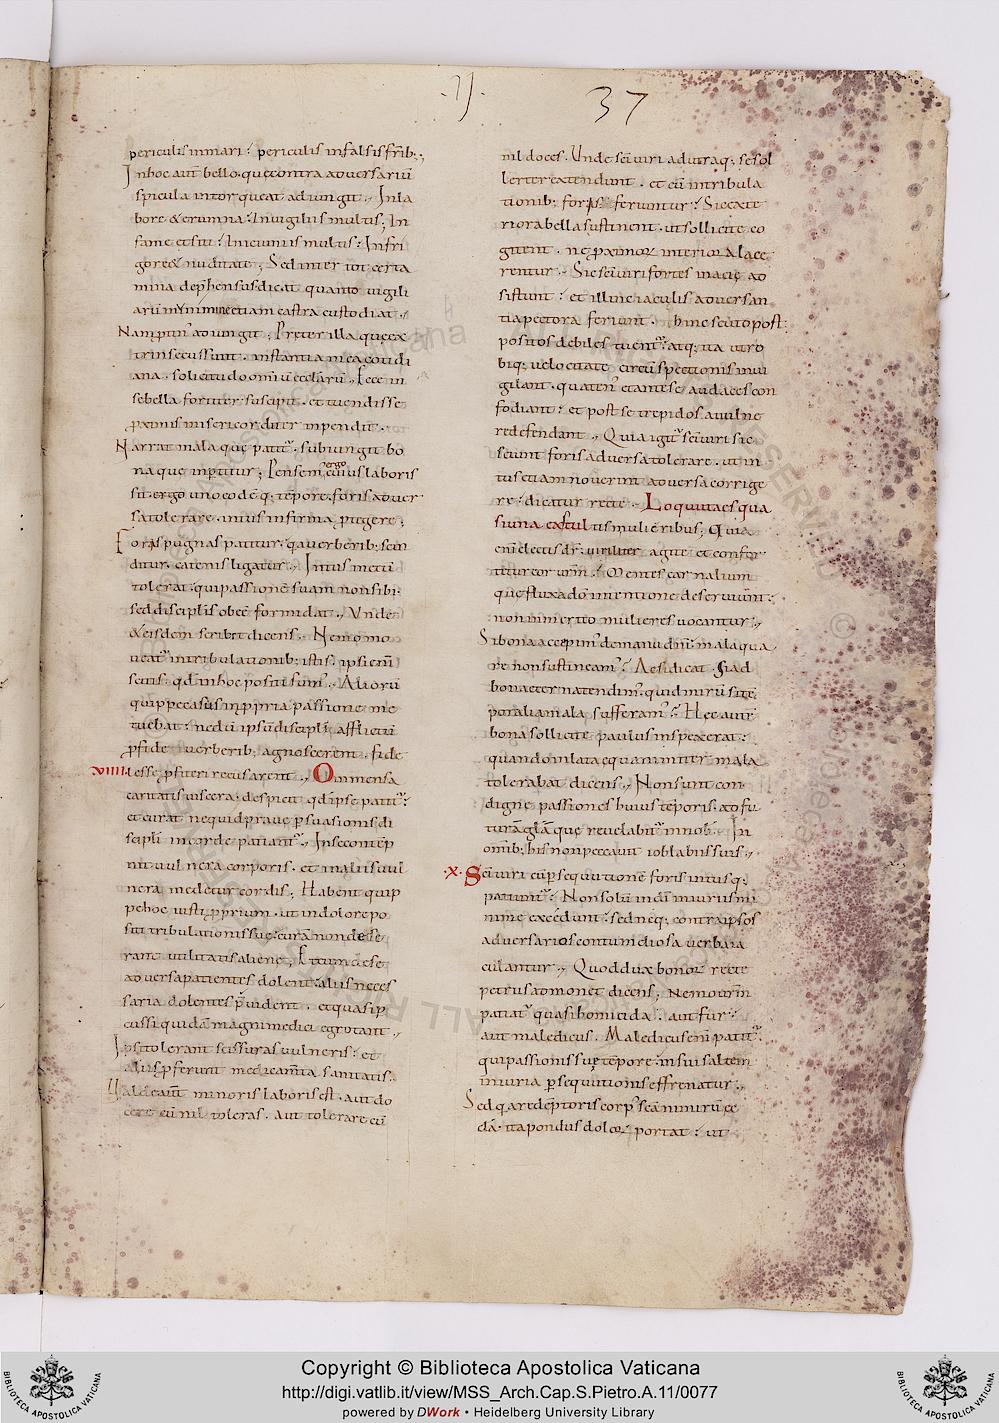 .IJ. 37
periculis in mari? periculis in falsis frib:,
Inhoc aut bello. que contra aduersariu
spicula intorqueat adiungit. Inla
bore & erumna? Inuigiliis multis; In
fame et siti? Inieiuniis multis? Infri
gore & nuditate; Sed inter tot certa
mina deprehensus dicat quanto uigili
aru munimine etiam castra custodiat.
Nam ptin' adiungit; Preter illa que ex
trinsecus sunt. instantia mea cotidi
ana. solicitudo omiu ecclaru. Ecce in
se bella fortiter suscipit. et tuendis se
pximis misericorditer inpendit.
Narrat mala que patit. subiungit bo
na que inptitur; Pensem ergo cuius laboris
sit. ergo uno eodeq; tepore. foris aduer
sa tolerare. intus infirma ptegere;
Foras pugnas patitur. qa uerberib; scin
ditur. catenis ligatur. Intus metu
tolerat. qui passione suam non sibi.
sed discipulis obee formidat. Vnde
& eisdem scribit dicens. Nemo mo
ueat' intribulationib; istis. ipsi eni
scitis. qd inhoc positi sum'. Alioru
quippe casus in ppria passione me
tuebat. ne du ipsu discipli afflictu
pfide uerberib; agnoscerent. fide
viiii. lesse pfiteri recusarent. O inmensa
caritatis uiscera. despicit qd ipse patit?
et curat ne quid praue psuasionis di
scipli incorde patiant. In se contep
nit uulnera corporis. et in aliis uul
nera medetur cordis; Habent quip
pe hoc iusti pprium. ut in dolore po
siti tribulationis sue. cura non dese
rant utilitatis aliene; Et cum de se
aduersa patientes dolent. aliis neces
saria docentes puident. et quasi p
cussi quida magni medici egrotant.
Ipsi tolerant scissuras uulneris? et
aliis pferunt medicamta sanitatis.
Valde aut minoris laboris est. aut do
cere cu nil toleras. aut tolerare cu
nil doces. Vnde sci uiri ad utraq; se sol
lerter extendunt. et cu in tribula
tionib; forsis feriuntur? Sic exte
riora bella sustinent. ut sollicite co
gitent. ne pximor interiora lace
rentur. Sic sci uiri fortes in acie ad
sistunt? et illinc iaculis aduersan
tia pectora feriunt. hinc scuto post
positos debiles tuent? atq; ita utro
biq; uelocitate circuspectionis inui
gilant. quaten' et ante se audaces con
fodiant? et post se trepidos a uulne
re defendant. Quia igit sci uiri sic
sciunt foris aduersa tolerare. ut in
tus etiam nouerint aduersa corrige
re? dicatur recte. Loquuta es qua
si una ex stultis mulieribus; Quia
eni electis dr. uiriliter agite et confor
tetur cor urm? Mentes carnalium
que fluxa do in intentione deseruiunt?
non inmerito mulieres uocantur;
Si bona accepim' de manu dni? mala qua
re non sustineam'? Ac si dicat. Si ad
bona eterna tendim'. quid miru si te
poralia mala sufferam'? Hec aute
bona sollicite paulus inspexerat?
quando inlata equanimiter mala
tolerabat dicens. Non sunt con
digne passiones huius teporis. ad fu
tura gla que reuelabit in nob. In
omib; his non peccauit iob labiis suis.
.x. Sci uiri cu psequutione foris intusq;
patiunt? Non solu in di iniuris mi
nime excedunt? sed neq; contra ipsos
aduersarios contumeliosa uerba ia
culantur. Quod dux bonor recte
petrus admonet dicens; Nemo urm
patiat' quasi homicida. aut fur?
aut maledicus. Maledicus eni patit.
qui passionis sue tepore. in sui saltem
iniuria psequtionis effrenatur.
Sed qa redeptoris corp' sca nimiru ec
cla. ita pondus dolor portat? ut
Copyright © Biblioteca Apostolica Vaticana
http://digi.vatlib.it/view/MSS_Arch.Cap.S.Pietro.A.11/0077
powered by DWork • Heidelberg University Library